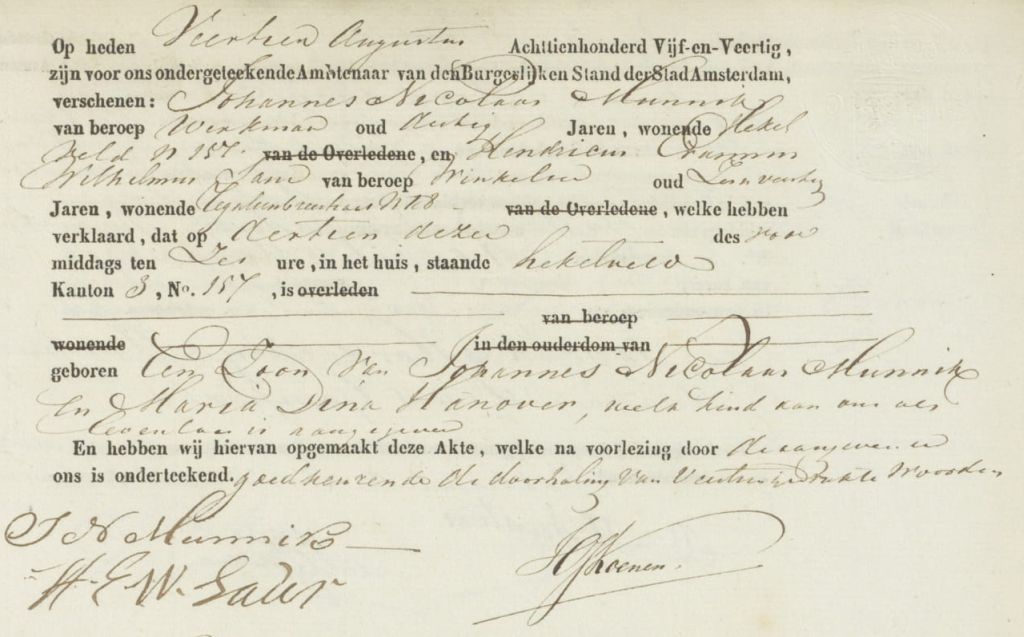 Op heden Veertien Augustus Achttienhonderd Vijf-en-Veertig,
zijn voor ons ondergeteekende Ambtenaar van den Burgerlijken Stand der Stad Amsterdam,
verschenen: Johannes Nicolaas Munnik
van beroep Werkman oud dertig Jaren, wonende Hekel
Veld N 157. van de Overledene, en Hendricus
Wilhelmus van beroep Winkelier oud
Jaren, wonende N van de Overledene, welke hebben
verklaard, dat op dertien dezer des voor
middags ten Zes ure, in het huis, staande hekelveld
Kanton 3, No. 157, is overleden
van beroep
wonende in den ouderdom van
geboren Een Zoon Van Johannes Nicolaas Munnik
En Maria Dina Hanover, welk kind aan ons als
levenloos is aangegeven
En hebben wij hiervan opgemaakt deze Akte, welke na voorlezing door de aangevers en
ons is onderteekend. goedkeurende de doorhaling Van Veertien gedrukte Woorden
J N Munnik
H. E. W.
Koenen.